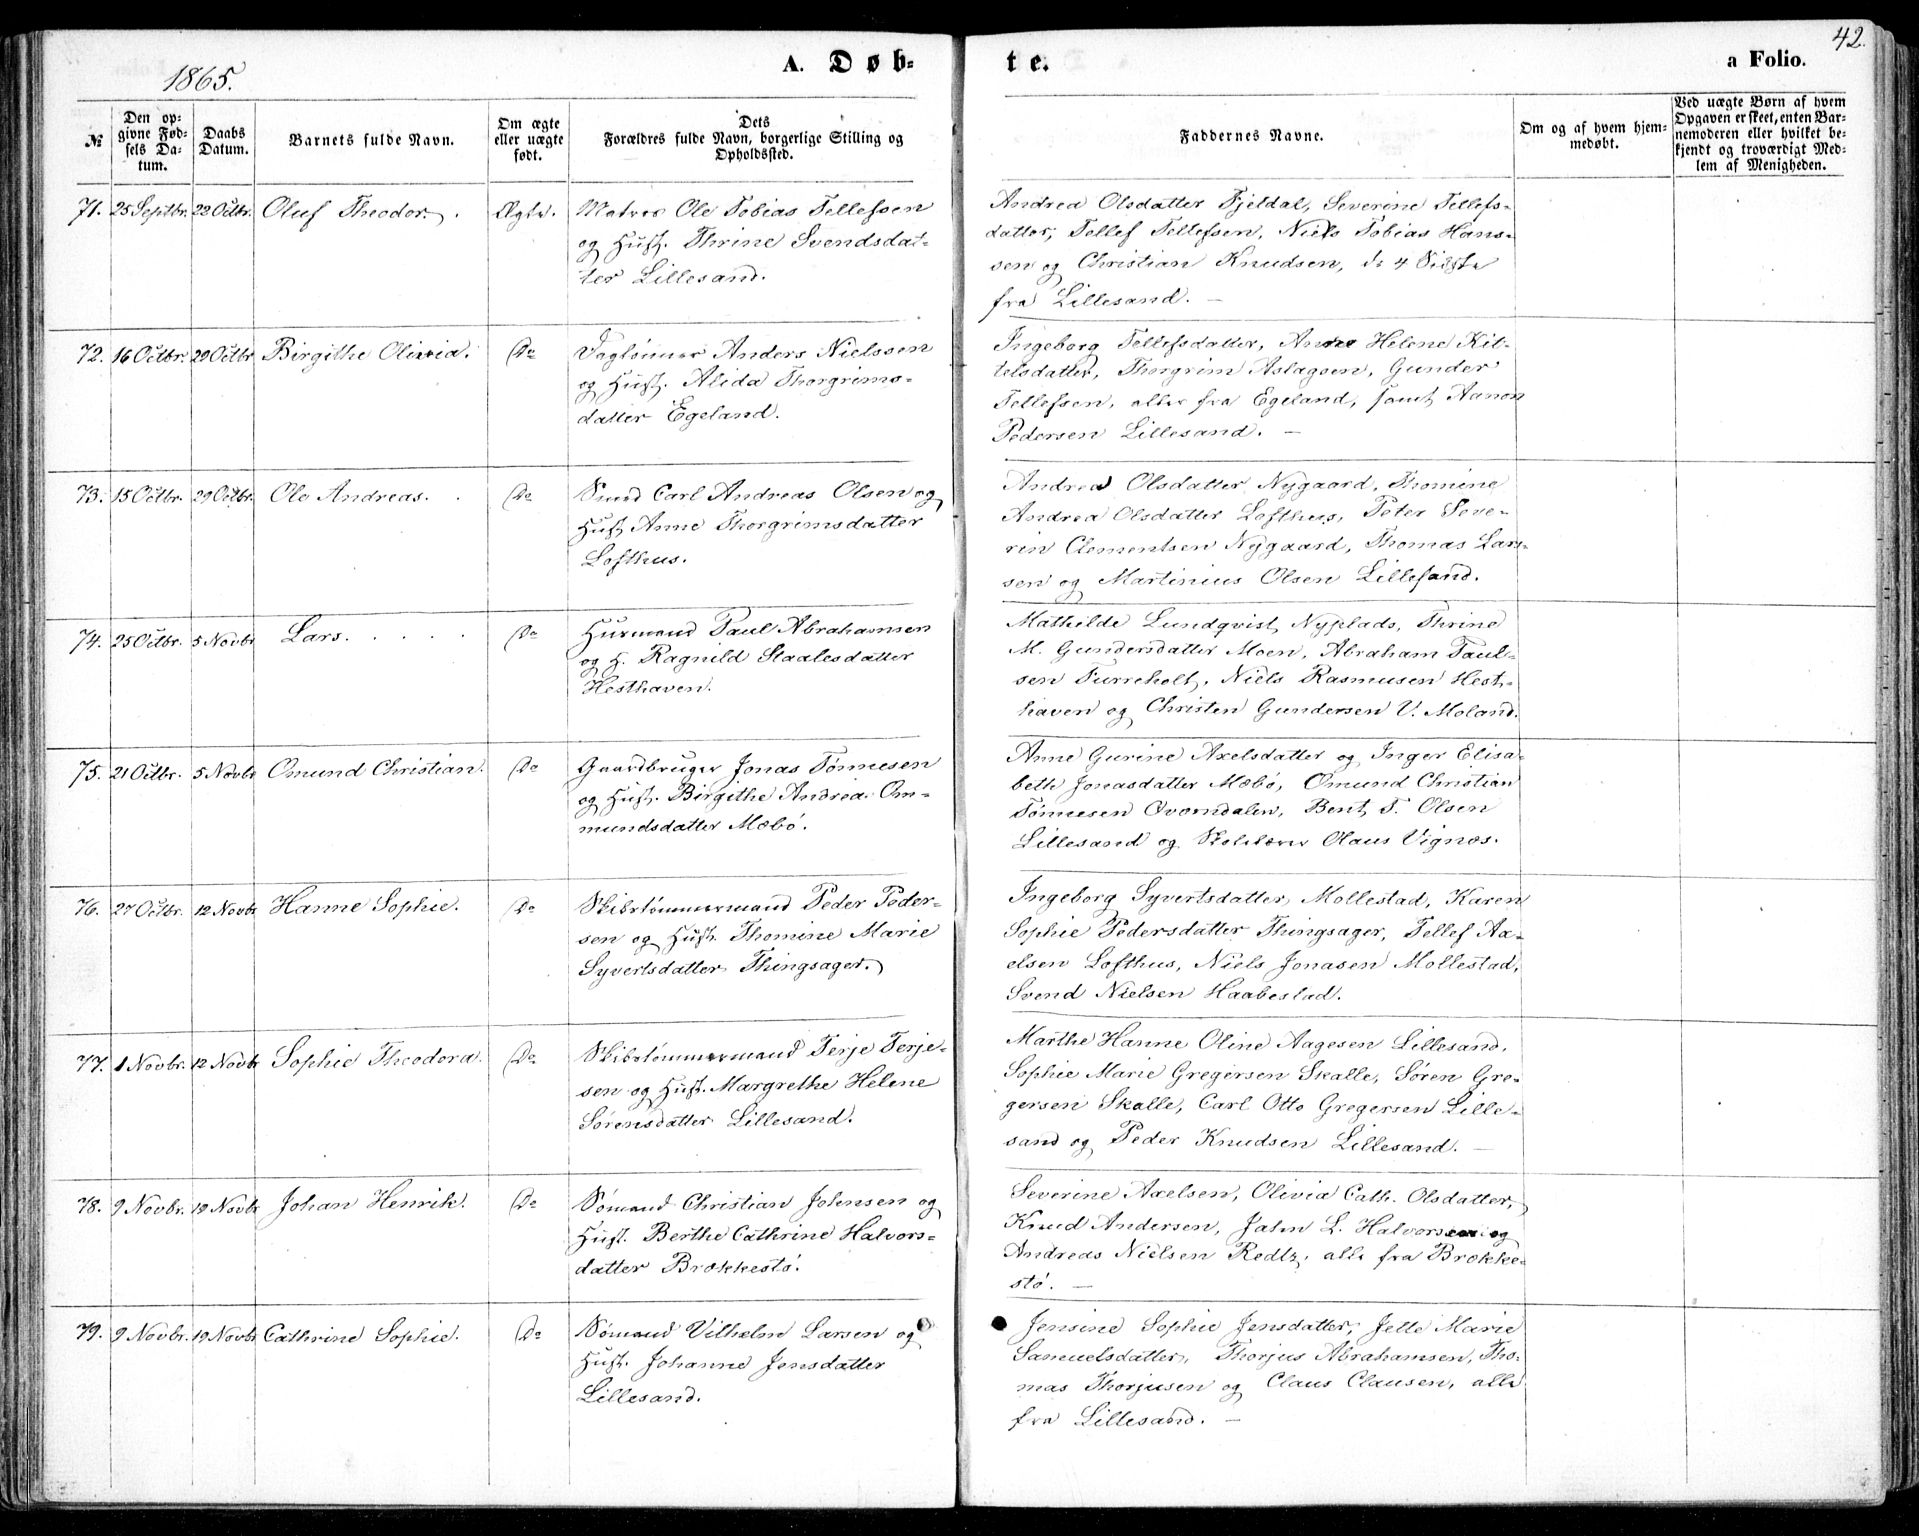 1865.
A. Døb-
te.
a Folio.
42.
№
Den op-
givne Fød-
sels Da-
tum.
Daabs
Datum.
Barnets fulde Navn.
Om ægte
eller uægte
født.
Dets
Forældres fulde Navn, borgerlige Stilling og
Opholdssted.
Faddernes Navne.
Om og af hvem hjem-
medøbt.
Ved uægte Børn af hvem
Opgaven er skeet, enten Bar-
nemoderen eller hvilket be-
kjendt og troværdigt Med-
lem af Menigheden.
71. 25 Septbr. 22 Octbr. Oluf Theodor. Ægte. Matros Ole Tobias Tellefsen
og Hust. Thrine Svendsdat-
ter Lillesand.
Andrea Olsdatter Fjeldal, Severine Tellefs-
datter, Tellef Tellefsen, Niels Tobias Hans-
sen og Christian Knudsen, de 4 Sidste
fra Lillesand. —
72. 16 Octbr. 29 Octbr Birgithe Olivia. Do Daglønner Anders Nielssen
og Hust. Alida Thorgrims-
datter Egeland.
Ingeborg Tellefsdatter, Anne Helene Kit-
telsdatter, Thorgrim Aslagsen, Gunder
Tellefsen, alle fra Egeland, samt Aanon
Pedersen Lillesand. —
73. 15 Octbr. 29 Octbr. Ole Andreas. Do Smed Carl Andreas Olsen og
Hust Anne Thorgrimsdatter
Lofthus.
Andrea Olsdatter Nygaard, Thomine
Andrea Olsdatter Lofthus, Peter Seve-
rin Clementsen Nygaard, Thomas Lars-
sen og Martinius Olsen Lillesand.
74. 25 Octbr. 5 Novbr Lars. Do Huusmand Paul Abrahamsen
og H. Ragnild Staalesdatter
Hesthaven.
Mathilde Lundqvist Nyplads, Thrine
M. Gundersdatter Moen, Abraham Paul-
sen Furreholt, Niels Rasmusen Hest-
haven og Christen Gundersen V. Moland.
75. 21 Octbr. 5 Novbr Omund Christian. Do Gaardbruger Jonas Tønnesen
og Hust. Birgithe Andrea Om-
mundsdatter Mæbø.
Anne Gurine Axelsdatter og Inger Elisa-
beth Jonasdatter Mæbø, Omund Christian
Tønnesen Qværndalen, Bent T. Olsen
Lillesand og Skolelærer Olaus Vignæs.
76. 27 Octbr. 12 Novbr Hanne Sophie. Do Skibstømmermand Peder Peder-
sen og Hust. Thomine Marie
Syvertsdatter Thingsager.
Ingeborg Syvertsdatter Mollestad, Karen
Sophie Pedersdatter Thingsager, Tellef Ax-
elsen Lofthus, Niels Jonasen Mollestad,
Svend Nielsen Haabestad.
77. 1 Novbr. 12 Novbr Sophie Theodora. Do Skibstømmermand Terje Terje-
sen og Hust. Margrethe Helene
Sørensdatter Lillesand.
Marthe Hanne Oline Aagesen Lillesand,
Sophie Marie Gregersen Skalle, Søren Gre-
gersen Skalle, Carl Otto Gregersen Lille-
sand og Peder Knudsen Lillesand. —
78. 9 Novbr. 19 Novbr Johan Henrik. Do Sømand Christian Johnsen og
Hust. Berthe Cathrine Halvors-
datter Brækkestø.
Severine Axelsen, Olivia Cath. Olsdatter,
Knud Andersen, John L. Halvorsen og
Andreas Nielsen Redtz, alle fra Brække-
stø. —
79. 9 Novbr. 19 Novbr Cathrine Sophie. Do Sømand Vilhelm Larsen og
Hust. Johanne Jensdatter
Lillesand.
Jensine Sophie Jensdatter, Jelle Marie
Samuelsdatter, Thorjus Abrahamsen, Tho-
mas Thorjusen og Claus Clausen, alle
fra Lillesand. —